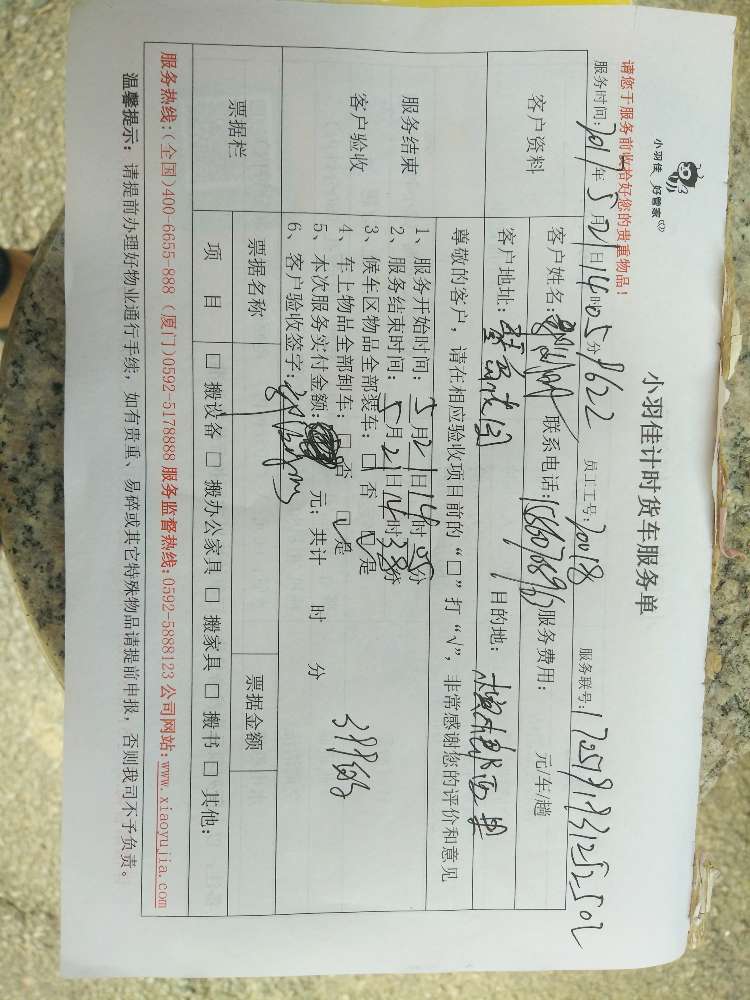 小羽佳 好管家
小羽佳计时货车服务单
请您于服务前收拾好您的贵重物品！
服务时间：2017年5月21日14时05分 员工工号：70018 服务联号：
客户资料
客户姓名： 联系电话： 服务费用： 元/车/趟
客户地址： 目的地：
服务结束
客户验收
尊敬的客户，请在相应验收项目前的“□”打“√”，非常感谢您的评价和意见
1、服务开始时间：5月21日14时05分
2、服务结束时间：5月21日14时38分
3、候车区物品全部装车：□否 ☑是
4、车上物品全部卸车：□否 ☑是
5、本次服务实付金额： 元；共计 时 分
6、客户验收签字：
票据栏
票据名称 票据金额
项目 □搬设备 □搬办公家具 □搬家具 □搬书 □其他：
服务热线：(全国)400-6655-888 (厦门)0592-5178888 服务监督热线：0592-5888123 公司网站：www.xiaoyujia.com
温馨提示：请提前办理好物业通行手续，如有贵重、易碎或其它特殊物品请提前申报，否则我司不予负责。